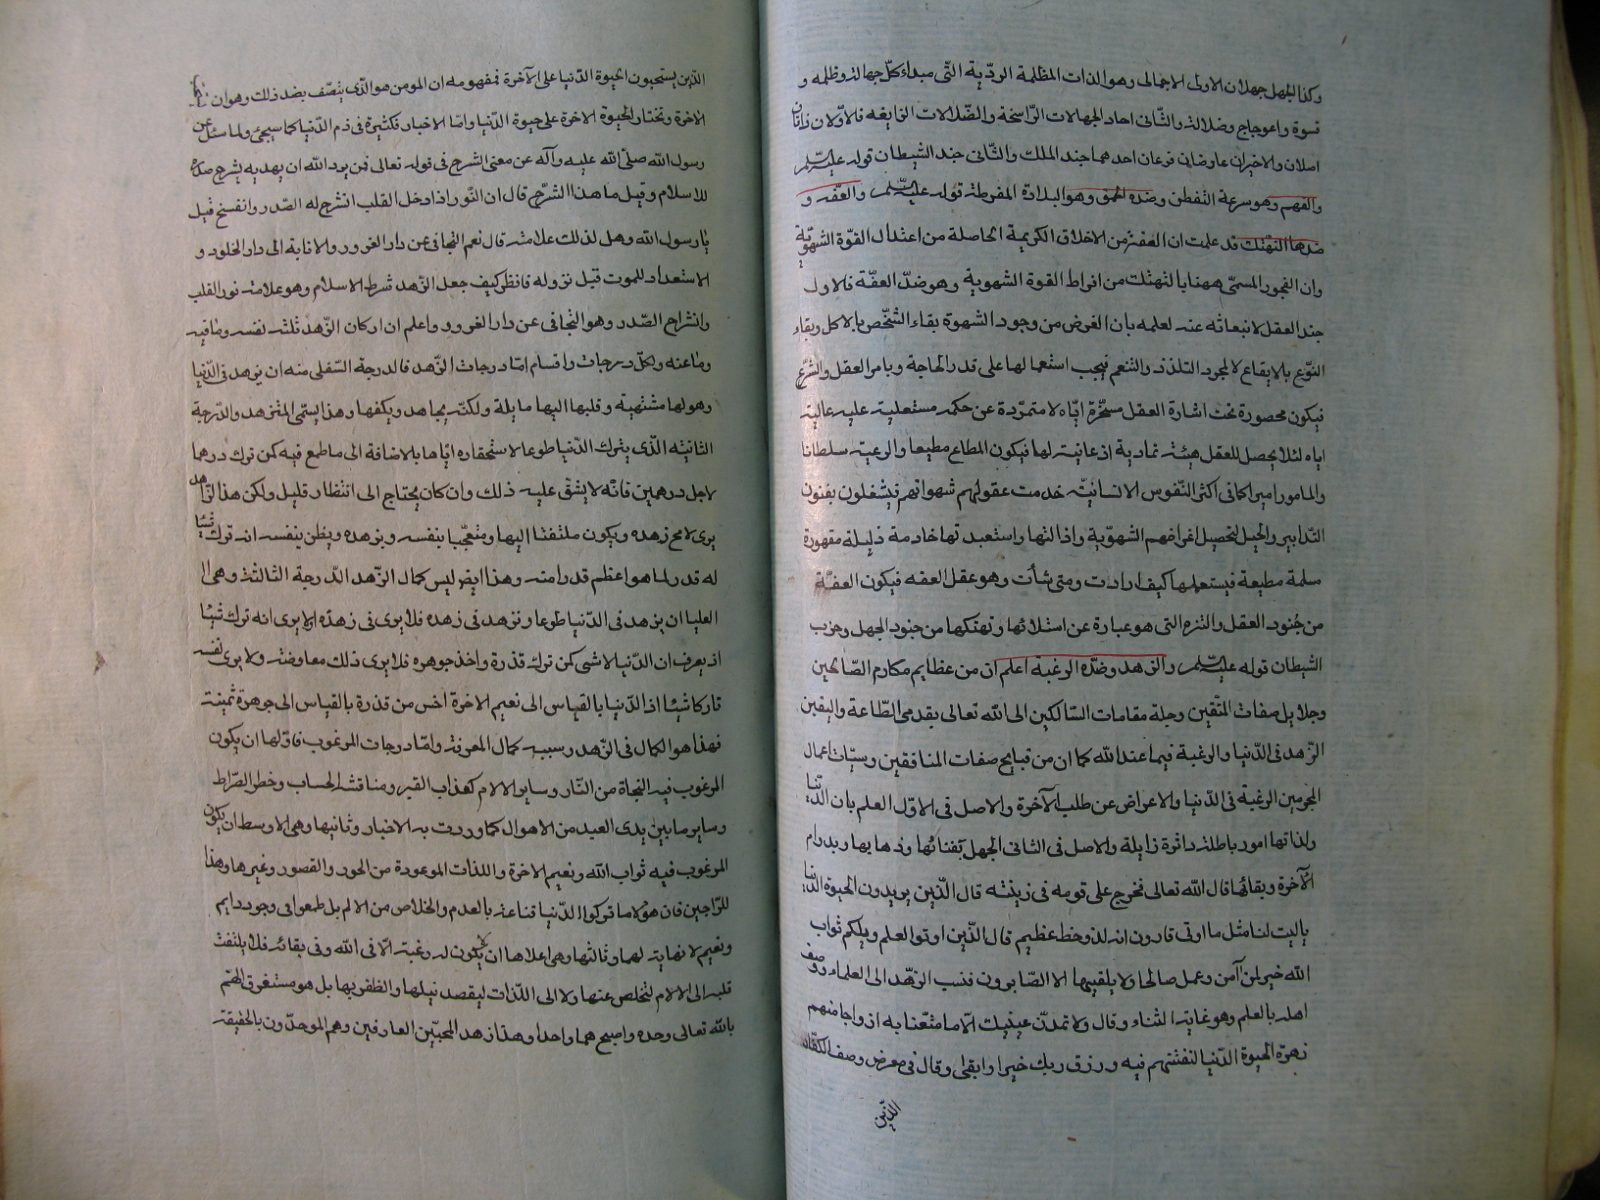 وكذا الجهل جهلان الاول الاجمالى وهو الذات المظلمة الردّية التّى مبداء كلّ جهالة وظلمه و
قسوة واعوجاج وضلالة والثّانى احاد الجهالات الرّاسخة والضّلالات الزايغه فالاوّلان ذاتان
اصلان والاخيران عارضان فرعان احدهما جند الملك والثّانى جند الشيطان قوله عليه السّلم
والفهم وهو سرعة التفطن وضده الحمق وهو البلادة المفرطة قوله عليه السّلم والعفّه و
ضدها التهتك قد علمت ان العفة من الاخلاق الكريمة الحاصلة من اعتدال القوّة الشهويّة
وان الفجور المسمّى ههنا بالتهتك من افراط القوة الشهوية وهو ضدّ العفّة فالاول
جند العقل لانبعاثه عنه لعلمه بان الغرض من وجود الشهوة بقاء الشّخص بالاكل وبقاء
النّوع بالايقاع لا لمجرد التلذذ والتنعم فيجب استعمالها على قدر الحاجة وبامر العقل والشّرع
فيكون محصورة تحت اشارة العقل مسخّرة ايّاه لا متمرّدة عن حكمه مستعلية عليه عالية
اياه لئلا يحصل للعقل هيئة تمادية اذعانية لها فيكون المطاع مطيعا والرعية سلطانا
والمامور اميرا كما فى اكثر النّفوس الانسانيّه خدمت عقولهم شهواتهم فيشغلون بفنون
التّدابير والحيل لتحصيل اغراضهم الشهويّة واذالتها واستعبدتها خادمة ذليلة مقهورة
سلمة مطيعة فيستعملها كيف ارادت ومتى شأت وهو عقل العفه فيكون العفّة
من جُنود العقل والتزم التى هو عبارة عن استلائها وتهتكها من جنود الجهل وحزب
الشيطان قوله عليه السّلم والزهد وضدّه الرغبة اعلم ان من عظايم مكارم الصّالحين
وجلايل صفات المتّقين وجلة مقامات السّالكين الى الله تعالى بقدمى الطّاعة واليقين
الزّهد فى الدّنيا والرغبة فيما عند الله كما ان من قبايح صفات المنافقين وسيّات اعمال
المجرمين الرغبة فى الدّنيا والاعراض عن طلب الآخرة والاصل فى الاوّل العلم بان الدّنيا
ولذاتها امور باطلة داثرة زايلة والاصل فى الثانى الجهل بفنائها وذهابها وبدوام
الآخرة وبقائها قال الله تعالى فخرج على قومه فى زينته قال الّذين يريدون الحيوة الدّنيا
ياليت لنا مثل ما اوتى قارون انه لذو حظ عظيم قال الّذين اوتوا العلم ويلكم ثواب
الله خير لمن آمن وعمل صالحا ولا يلقيها الا الصّابرون فنسب الزهّد الى العلماء ووصف
اهله بالعلم وهو غاية الثناء وقال ولا تمدنّ عينيك الا ما متّعنا به ازواجا منهم
زهرة الحيوة الدّنيا لنفتنهم فيه ورزق ربك خير وابقى وقال فى معرض وصف الكفّار
الّذين
الذين يستحبون الحيوة الدّنيا على الآخرة فمفهومه ان المومن هو الّذى يتصّف بضد ذلك وهو ان
الاخرة وتختار الحيوة الاخرة على حيوة الدّنيا وامّا الاخبار فكثيرة فى ذم الدّنيا كما سيجئ ولما سئل عن
رسول الله صلّى الله عليه وآله عن معنى الشرح فى قوله تعالى فمن يرد الله ان يهديه يشرح صدره
للاسلام وقيل ما هذا الشرّح قال ان النّور اذا دخل القلب انشرح له الصّدر وانفسح قيل
يا رسول الله وهل لذلك علامة قال نعم التجافى عن دار الغرور والانابة الى دار الخلود و
الاستعداد للموت قبل نزوله فانظر كيف جعل الزّهد شرط الاسلام وهو علامة نور القلب
وانشراح الصّدر وهو التّجافى عن دار الغرور واعلم ان اركان الزّهد ثلثة نفسه وما فيه
وما عنه ولكلّ درجات واقسام امّا درجات الزّهد فالدرجة السّفلى منه ان يزهد فى الدّنيا
وهو لها مشتهية وقلبها اليها مايلة ولكنّه يجاهد ويكفها وهذا يسمّى المتزهد والدّرجة
الثانيّه الّذى يترك الدّنيا طوعا لاستحقاره ايّاها بالاضافة الى ما طمع فيه كمن ترك درهما
لاجل درهمين فانّه لا يشقّ عليه ذلك وان كان يحتاج الى انتظار قليل ولكن هذا الزّاهد
يرى لا محٓ زهده ويكون ملتفتا اليها ومتعجّبا بنفسه وبزهده ويظن بنفسه انه ترك شيئا
له قدر لما هو اعظم قدرا منه وهذا ايضٓ ليس كمال الزّهد الدّرجة الثالثة وهى ال
العليا ان يزهد فى الدّنيا طوعا وتزهد فى زهده فلا يرى فى زهده اذ لا يرى انه ترك شيئا
اذ يعرف ان الدّنيا لا شئ كمن ترك قذرة واخذ جوهره فلا يرى ذلك معاوضة ولا يرى نفسه
تاركا شيئا اذ الدّنيا بالقياس الى نعيم الاخرة اخس من قذرة بالقياس الى جوهرة ثمينة
فهذا هو الكمال فى الزّهد وسببه كمال المعرفة وامّا درجات المرغوب فاوّلها ان يكون
المرغوب فيه النجاة من النّار وساير الالام كعذاب القبر ومناقشة الحساب وخطر الصّراط
وساير ما بين يدى العبد من الاهوال كما وردت به الاخبار وثانيها وهى الاوسط ان يكون
المرغوب فيه ثواب الله ونعيم الاخرة واللذات الموعودة من الحور والقصور وغيرها وهذا
للرّاجين فان هؤلاء ما تركوا الدّنيا قناعة بالعدم والخلاص من الالم بل طمعوا فى وجود دايم
ونعيم لا نهاية لهما وثالثها وهى اعلاها ان لا يكون له رغبة الّا فى الله وفى بقائه فلا يلتفت
قلبه الى الالام لتخلص عنها ولا الى اللّذات ليقصد نيلها والظفر بها بل هو مستغرق الهمّ
بالله تعالى وحده واصبح هما واحدا وهذا زهد المحبّين العارفين وهم الموحدّون بالحقيقة